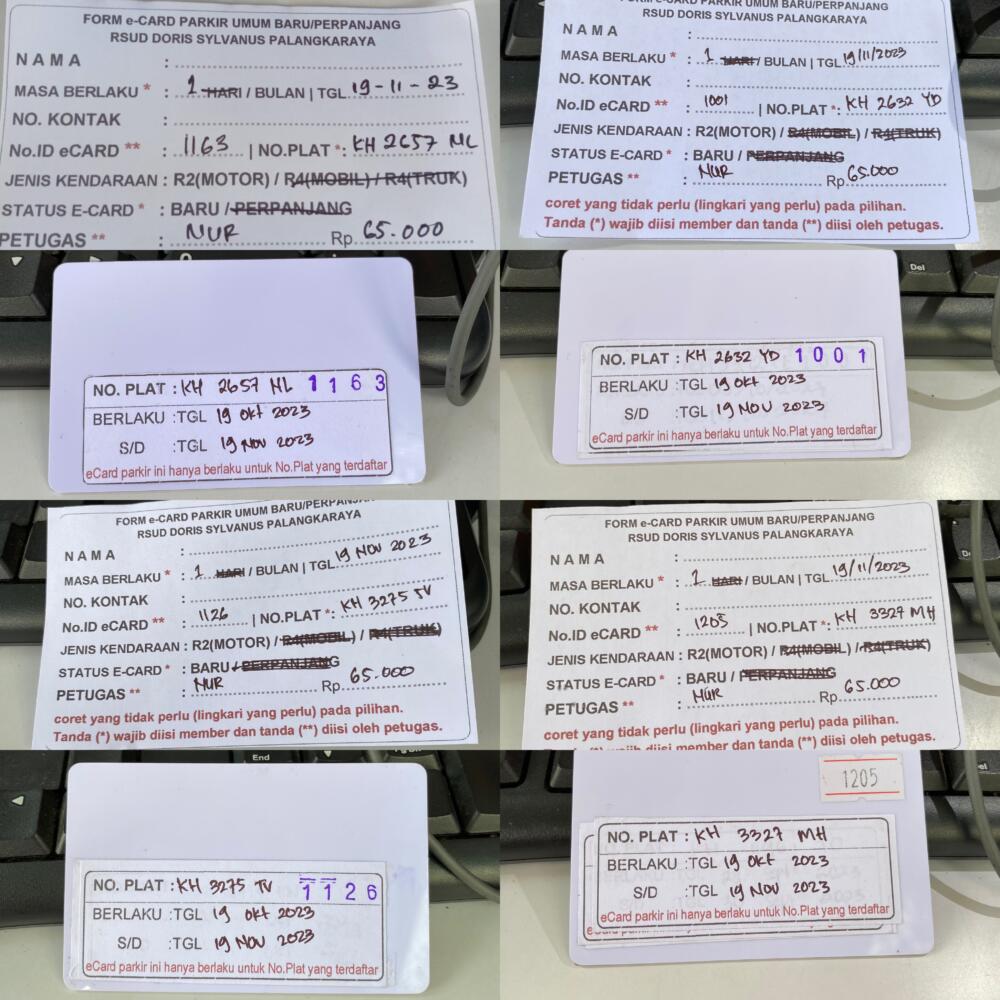 FORM e-CARD PARKIR UMUM BARU/PERPANJANG
RSUD DORIS SYLVANUS PALANGKARAYA
NAMA :
MASA BERLAKU * : 1 HARI / BULAN | TGL 19-11-23
NO. KONTAK :
No.ID eCARD ** : 1163 | NO.PLAT *: KH 2657 NL
JENIS KENDARAAN : R2(MOTOR) / R4(MOBIL) / R4(TRUK)
STATUS E-CARD * : BARU / PERPANJANG
PETUGAS ** : NUR Rp. 65.000
FORM e-CARD PARKIR UMUM BARU/PERPANJANG
RSUD DORIS SYLVANUS PALANGKARAYA
NAMA :
MASA BERLAKU * : 1 HARI / BULAN | TGL 19/11/2023
NO. KONTAK :
No.ID eCARD ** : 1001 | NO.PLAT *: KH 2632 YD
JENIS KENDARAAN : R2(MOTOR) / R4(MOBIL) / R4(TRUK)
STATUS E-CARD * : BARU / PERPANJANG
PETUGAS ** : NUR Rp. 65.000
coret yang tidak perlu (lingkari yang perlu) pada pilihan.
Tanda (*) wajib diisi member dan tanda (**) diisi oleh petugas.
NO. PLAT : KH 2657 NL 1163
BERLAKU :TGL 19 Okt 2023
S/D :TGL 19 NOV 2023
eCard parkir ini hanya berlaku untuk No.Plat yang terdaftar
Del
NO. PLAT : KH 2632 YD 1001
BERLAKU :TGL 19 Okt 2023
S/D :TGL 19 NOV 2023
eCard parkir ini hanya berlaku untuk No.Plat yang terdaftar
FORM e-CARD PARKIR UMUM BARU/PERPANJANG
RSUD DORIS SYLVANUS PALANGKARAYA
NAMA :
MASA BERLAKU * : 1 HARI / BULAN | TGL 19 NOV 2023
NO. KONTAK :
No.ID eCARD ** : 1126 | NO.PLAT *: KH 3275 TV
JENIS KENDARAAN : R2(MOTOR) / R4(MOBIL) / R4(TRUK)
STATUS E-CARD * : BARU / PERPANJANG
PETUGAS ** : NUR Rp. 65.000
coret yang tidak perlu (lingkari yang perlu) pada pilihan.
Tanda (*) wajib diisi member dan tanda (**) diisi oleh petugas.
FORM e-CARD PARKIR UMUM BARU/PERPANJANG
RSUD DORIS SYLVANUS PALANGKARAYA
NAMA :
MASA BERLAKU * : 1 HARI / BULAN | TGL 19/11/2023
NO. KONTAK :
No.ID eCARD ** : 1205 | NO.PLAT *: KH 3327 MH
JENIS KENDARAAN : R2(MOTOR) / R4(MOBIL) / R4(TRUK)
STATUS E-CARD * : BARU / PERPANJANG
PETUGAS ** : NUR Rp. 65.000
coret yang tidak perlu (lingkari yang perlu) pada pilihan.
wajib diisi member dan tanda (**) diisi oleh petugas.
End
NO. PLAT : KH 3275 TV 1126
BERLAKU :TGL 19 Okt 2023
S/D :TGL 19 NOV 2023
eCard parkir ini hanya berlaku untuk No.Plat yang terdaftar
1205
NO. PLAT : KH 3327 MH
BERLAKU :TGL 19 Okt 2023
S/D :TGL 19 NOV 2023
eCard parkir ini hanya berlaku untuk No.Plat yang terdaftar